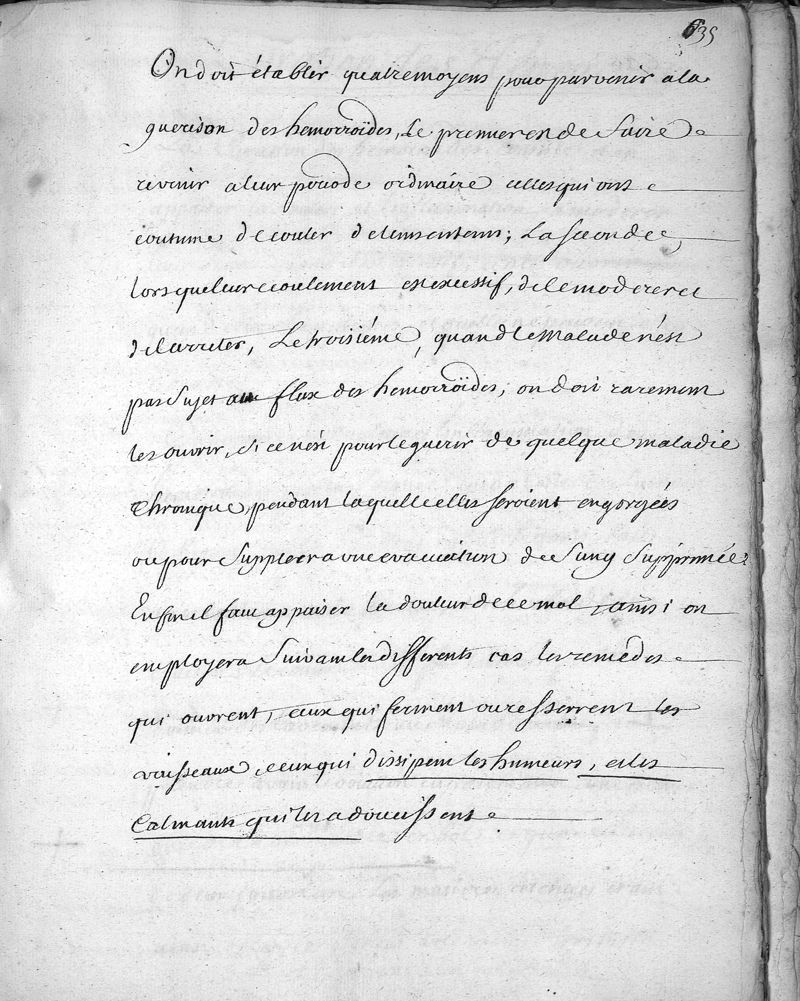 635
On doit établir quatre moyens pour parvenir a la
guerison des hemorroïdes, Le premier en de faire
revenir a leur periode ordinaire celles qui ont
coutume de couler de tems en tems; La seconde,
lors que leur ecoulement est excessif, de le moderer et
de l'arreter, Le troisiéme, quand le malade n'est
pas sujet au flux des hemorroïdes, on doit rarement
les ouvrir, si ce n'est pour le guerir de quelque maladie
chronique, pendant laquelle elles seroient engorgées
ou pour suppleer a une evacuation de sang supprimée
Enfin il faut appaiser la douleur de ce mal, ainsi on
employera suivant les differents cas les remedes
qui ouvrent, ceux qui ferment ou resserrent les
vaisseaux, ceux qui dissipent les humeurs, et les
Calmants qui les adoucissent